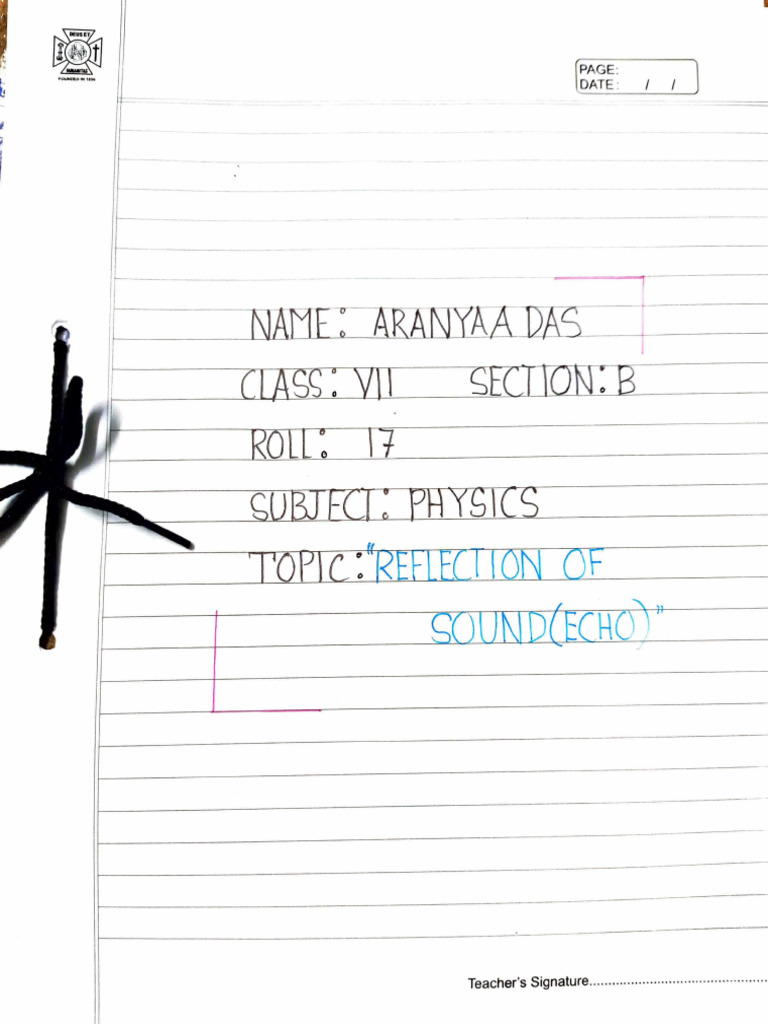 DEUS ET
HUMANITAS
FOUNDED IN 1830
PAGE:
DATE: / /
NAME: ARANYAA DAS
CLASS: VII SECTION: B
ROLL: 17
SUBJECT: PHYSICS
TOPIC: "REFLECTION OF
SOUND(ECHO)"
Teacher's Signature................................................